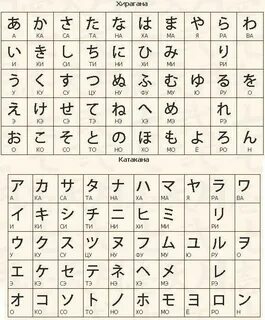 Хирагана
あ か さ た な は ま や ら わ
А КА СА ТА НА ХА МА Я РА ВА
い き し ち に ひ み り
И КИ СИ ТИ НИ ХИ МИ РИ
う く す つ ぬ ふ む ゆ る を
У КУ СУ ЦУ НУ ФУ МУ Ю РУ О
え け せ て ね へ め れ
Э КЭ СЭ ТЭ НЭ ХЭ МЭ РЭ
お こ そ と の ほ も よ ろ ん
О КО СО ТО НО ХО МО Ё РО Н
Катакана
ア カ サ タ ナ ハ マ ヤ ラ ワ
А КА СА ТА НА ХА МА Я РА ВА
イ キ シ チ ニ ヒ ミ リ
И КИ СИ ТИ НИ ХИ МИ РИ
ウ ク ス ツ ヌ フ ム ユ ル ヲ
У КУ СУ ЦУ НУ ФУ МУ Ю РУ О
エ ケ セ テ ネ ヘ メ レ
Э КЭ СЭ ТЭ НЭ ХЭ МЭ РЭ
オ コ ソ ト ノ ホ モ ヨ ロ ン
О КО СО ТО НО ХО МО Ё РО Н